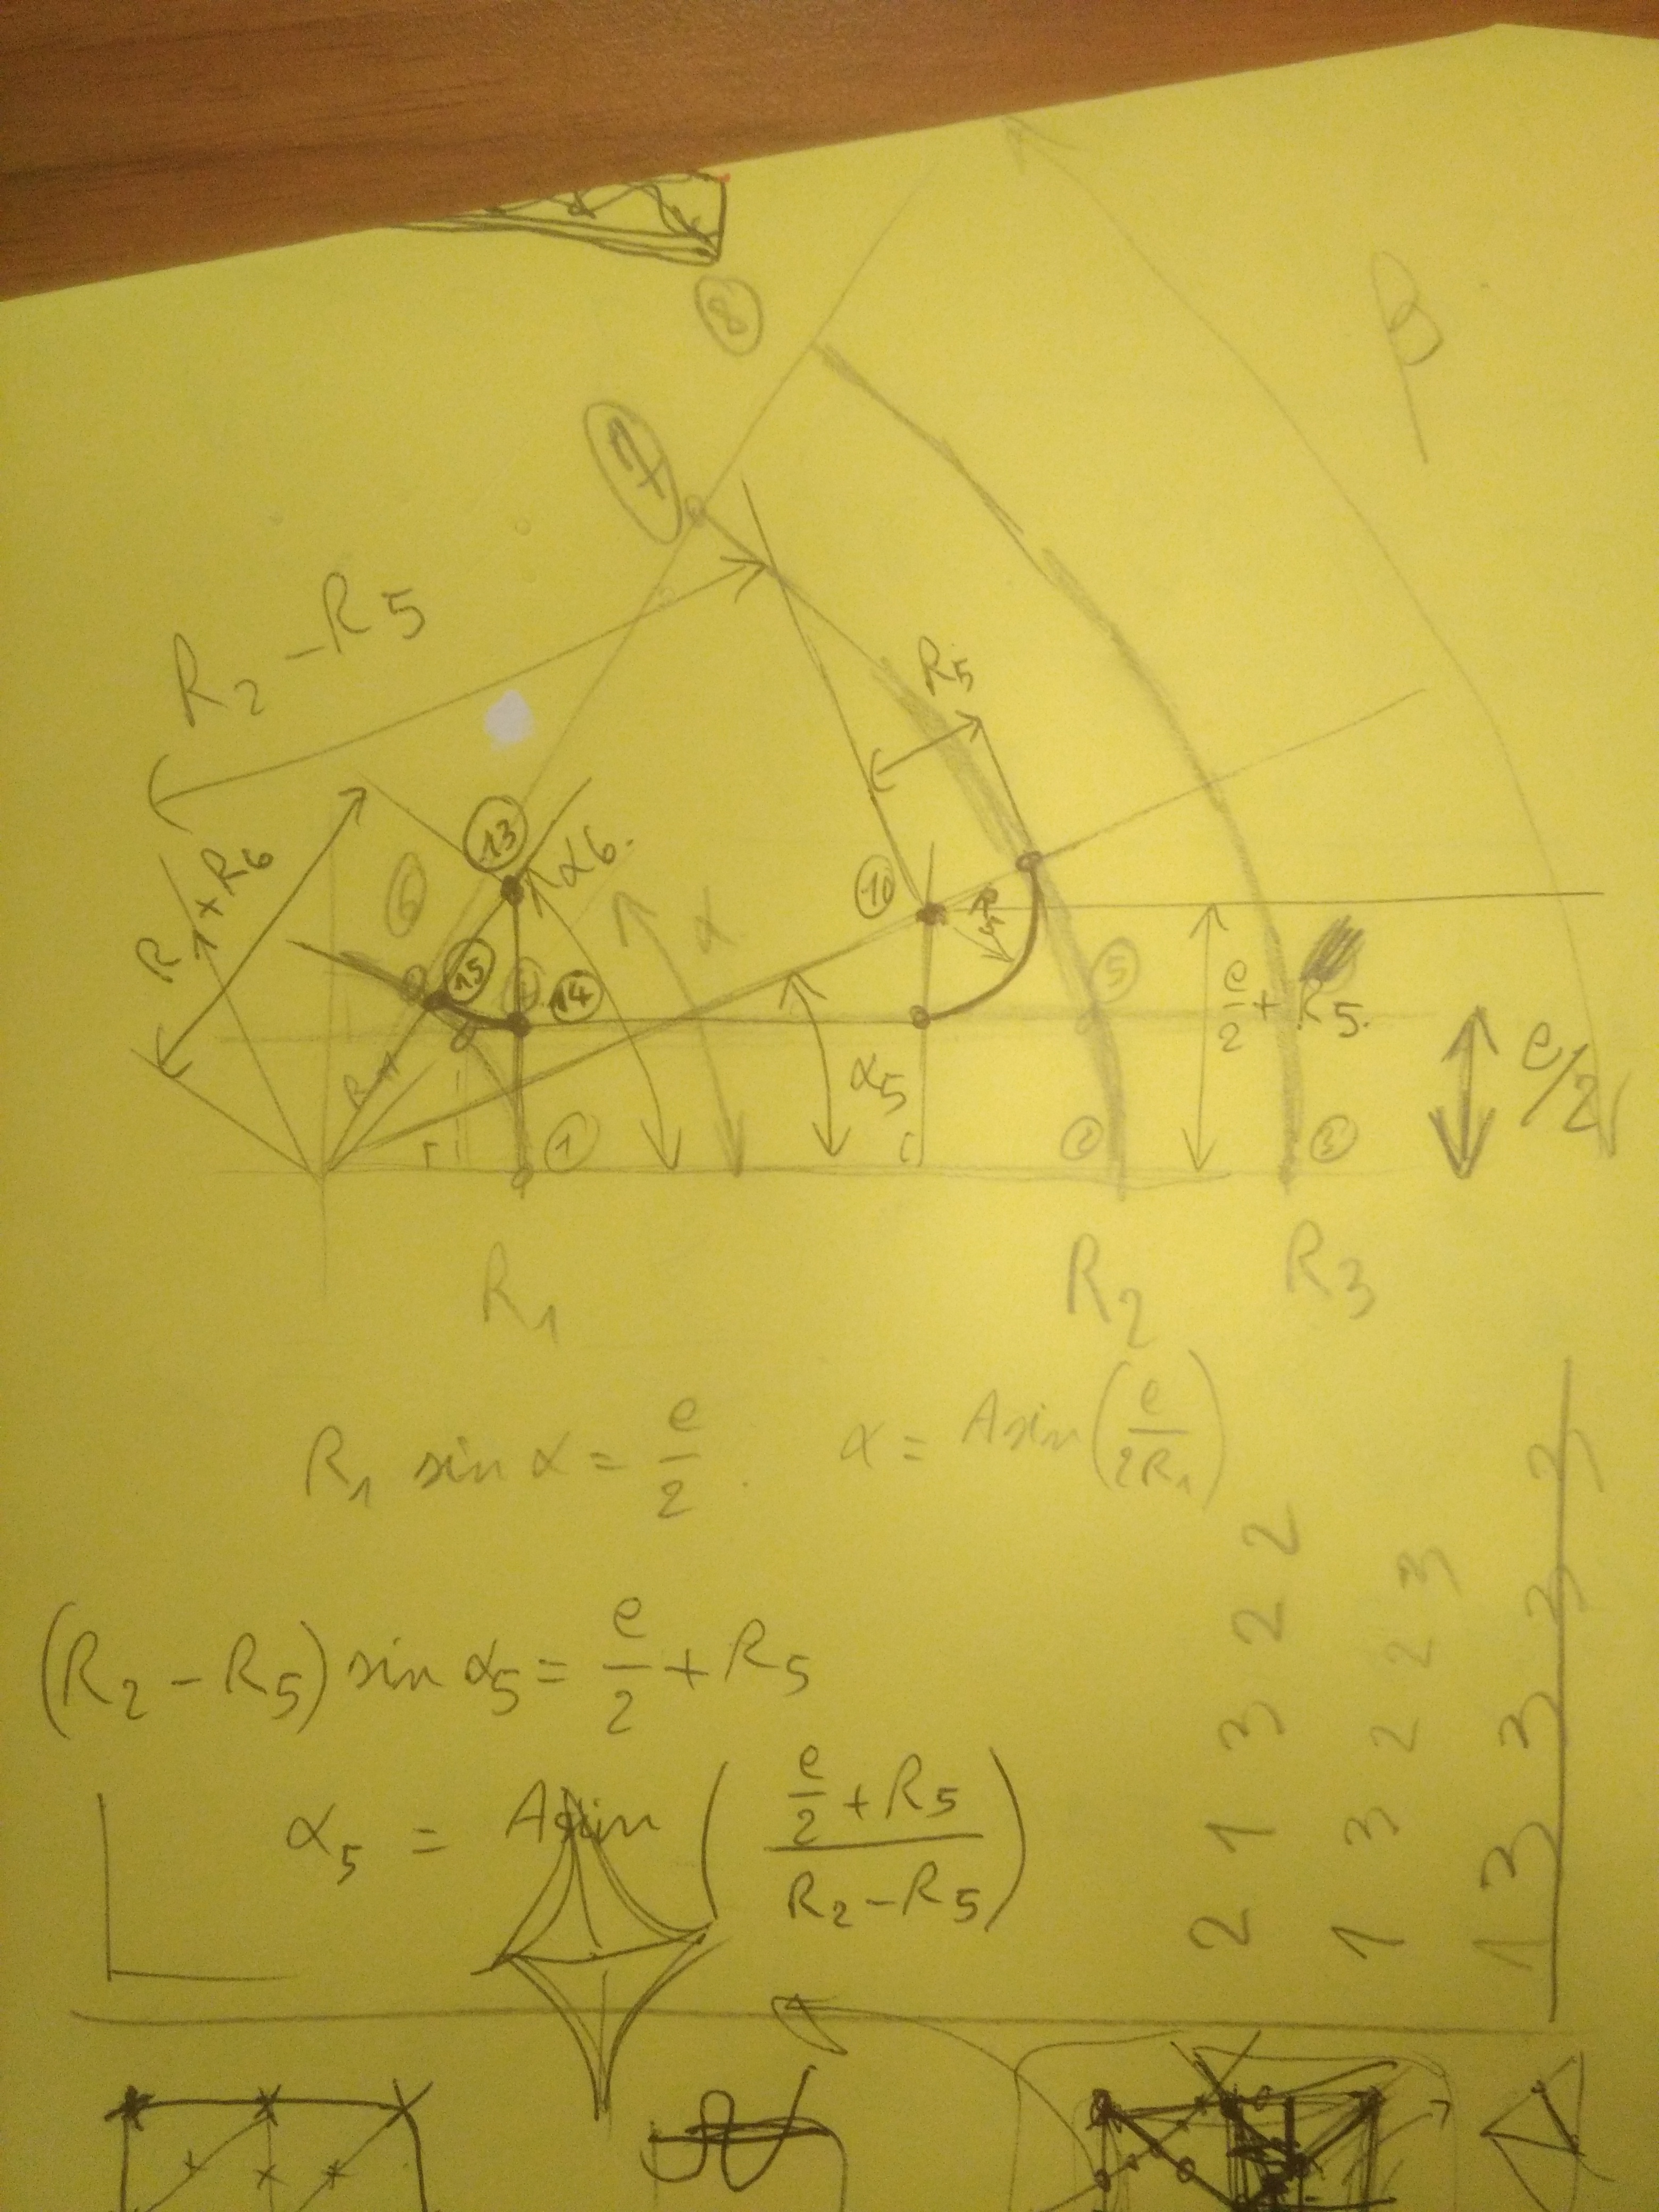 8
7
R₂ - R₅
R₅
13
α6.
R₁ + R₆
6
10
R₅
α
15
14
5
e/2 + R₅.
α₅
e/2
1
2
3
β
R₁
R₂
R₃
R₁ sin α = e/2. α = Asin(e/2R₁)
(R₂ - R₅) sin α₅ = e/2 + R₅
α₅ = Asin((e/2 + R₅)/(R₂ - R₅))
2 1 3 2 2
1 3 2 2 3
1 3 3 3 3